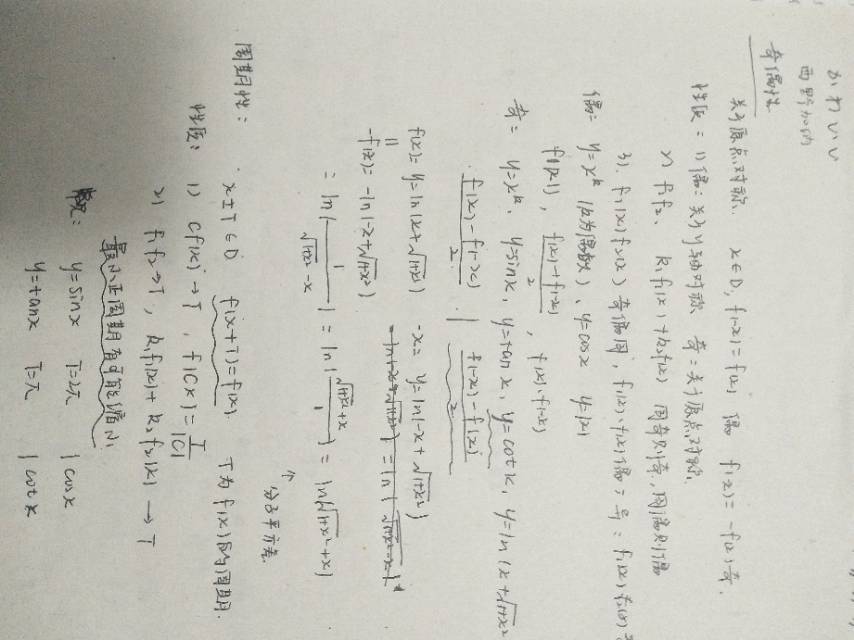 かわいい
西野加纳
奇偶性
关于原点对称. x∈D, f(-x)=f(x) 偶 f(-x)=-f(x) 奇.
性质：1) 偶：关于y轴对称 奇：关于原点对称.
2) f₁f₂、k₁f₁(x)+k₂f₂(x) 同奇则奇，同偶则偶
3). f₁(x)f₂(x) 奇偶同，f₁(x)、f₂(x) 偶；异：f₁(x)f₂(x)
偶：y=xᵏ (k为偶数)、y=cosx y=|x|
f(|x|)，f(x)+f(-x)/2，f(x)·f(-x)
奇：y=xᵏ、y=sinx、y=tanx、y=cotx、y=ln(x+√1+x²
f(x)-f(-x)/2 | f(-x)-f(x)/2
f(x)=y=ln(x+√1+x²) -x= y=ln(-x+√1+x²)
-f(x)=-ln(-x+√1+x²)
=ln(1/√1+x²-x)=ln(√1+x²+x/1)=ln(√1+x²+x)
↑分子平方差
周期性：x±T∈D f(x+T)=f(x). T为f(x)的周期.
性质：1) Cf(x)→T，f(Cx)=T/|C|
2) f₁f₂→T，k₁f₁(x)+k₂f₂(x)→T
最小正周期有可能缩小
常见：y=sinx T=2π | cosx
y=tanx T=π | cotx